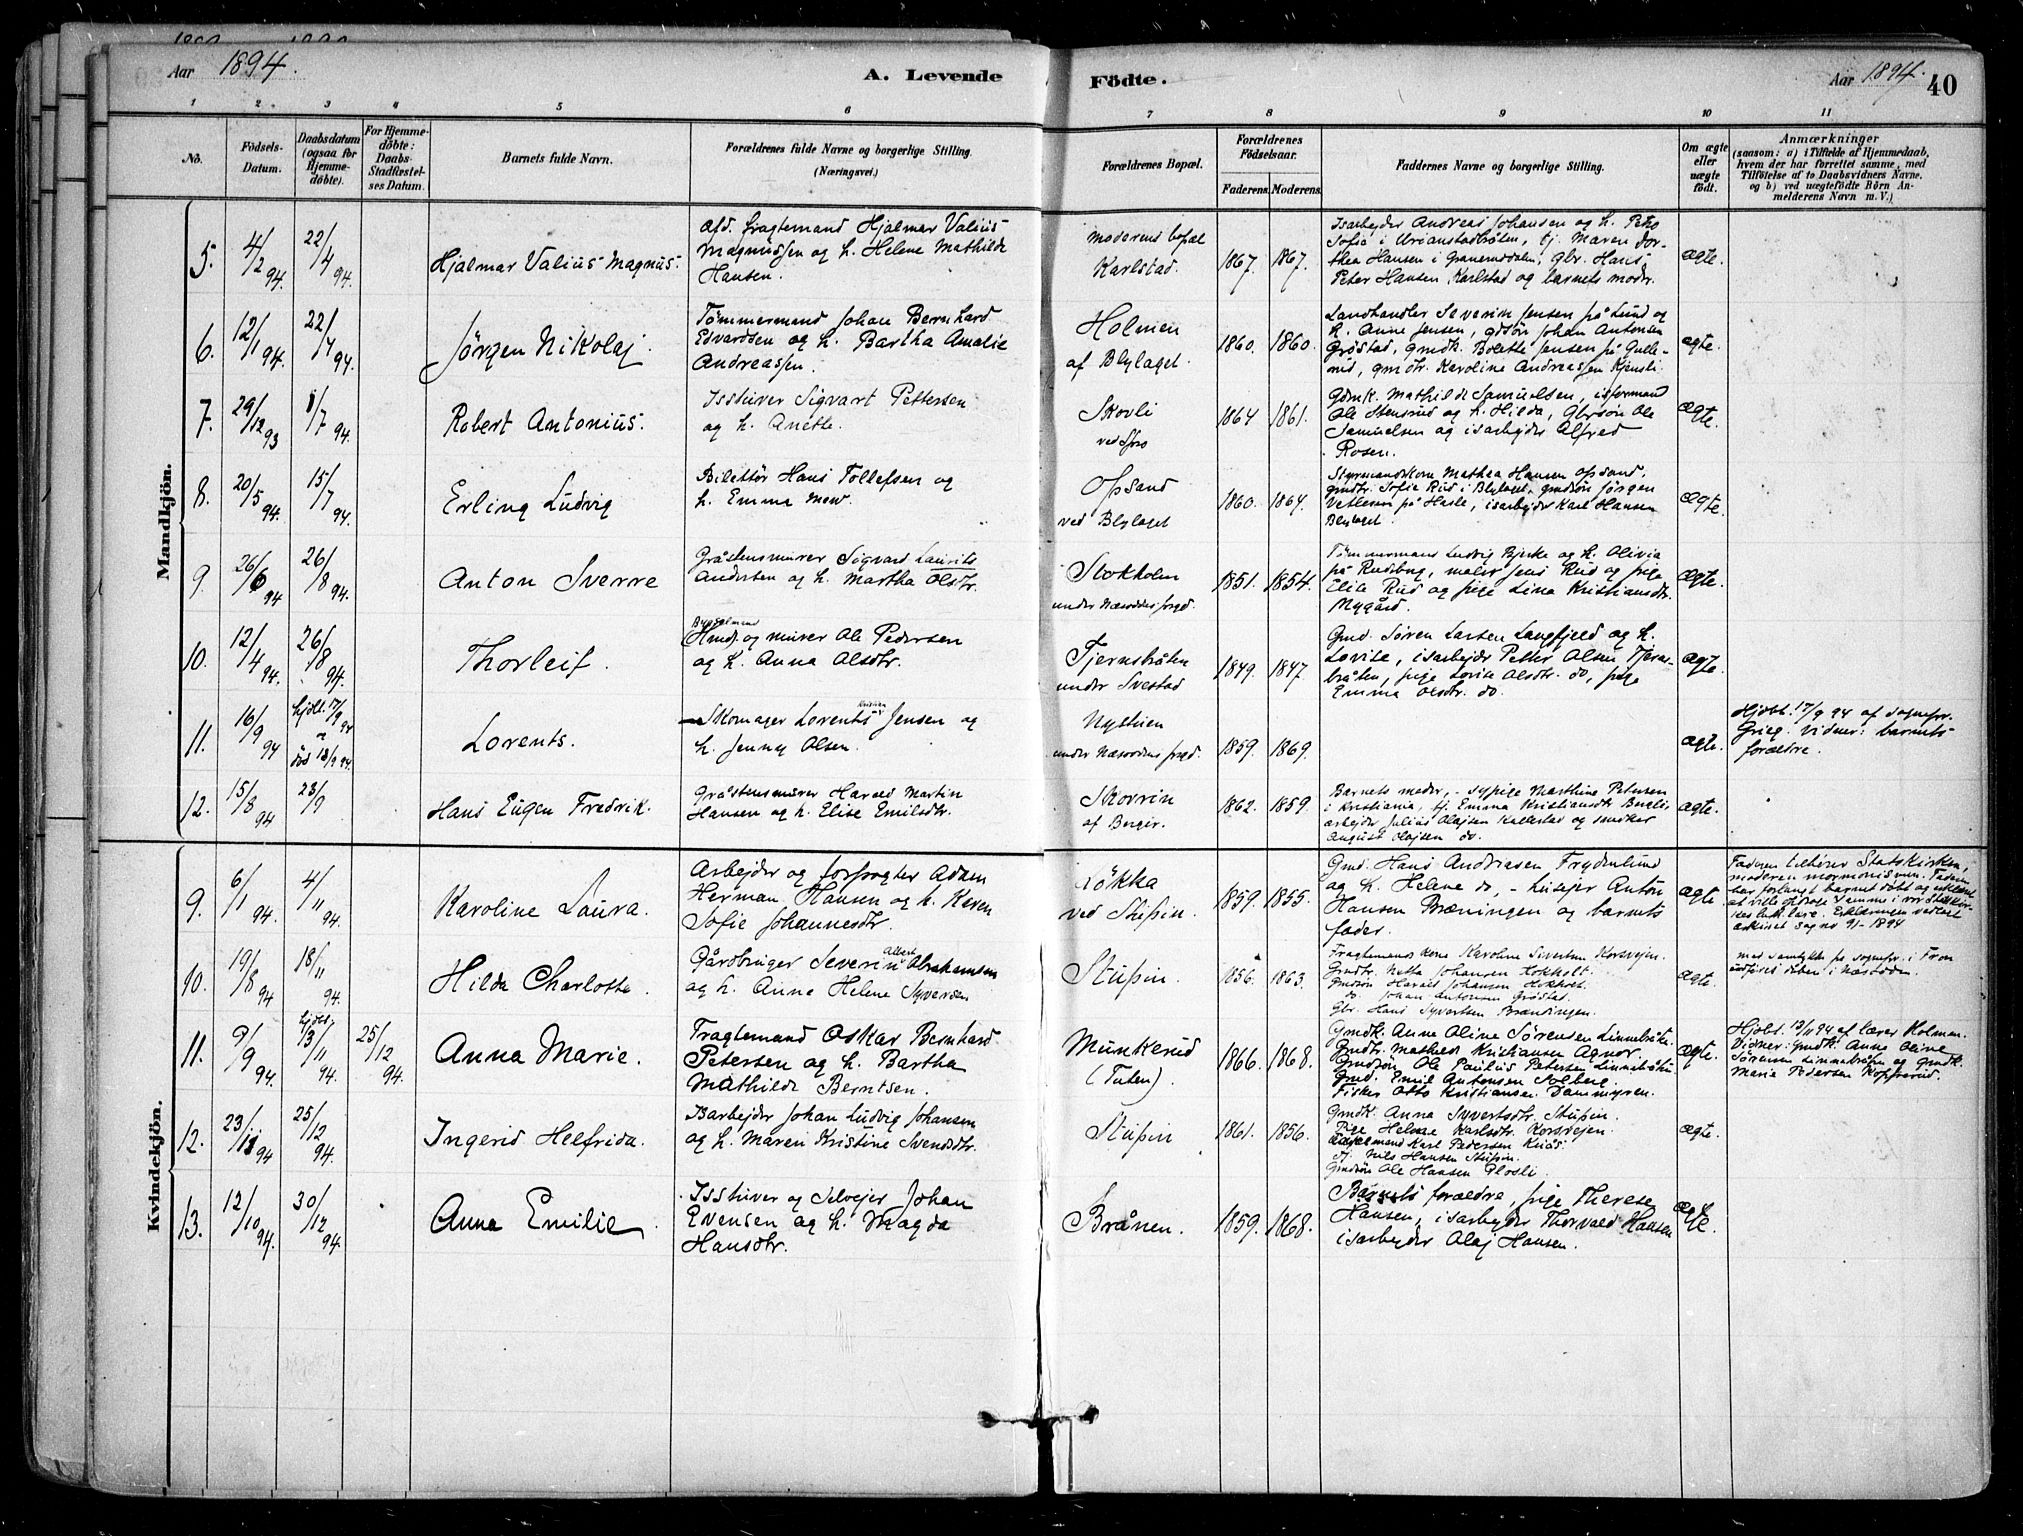 Aar 1894.
A. Levende
Födte.
Aar 1894.
40
1 2 3 4 5 6 7 8 9 10 11
No.
Födsels-
Datum.
Daabsdatum
(ogsaa for
Hjemme-
döbte).
For Hjemme-
döbte:
Daabs-
Stadfæstel-
ses Datum.
Barnets fulde Navn.
Forældrenes fulde Navne og borgerlige Stilling.
(Næringsvei.)
Forældrenes Bopæl.
Forældrenes
Födselsaar.
Faderens. Moderens.
Faddernes Navne og borgerlige Stilling.
Om ægte
eller
uægte
födt.
Anmærkninger
(saasom: a) i Tilfælde af Hjemmedaab,
hvem der har forrettet samme, med
Tilföielse af to Daabsvidners Navne,
og b) ved uægtefödte Börn An-
melderens Navn m. V.)
Mandkjön.
5.
4/2 94.
22/4 94.
Hjalmar Valius Magnus.
Afd. fragtemand Hjalmar Valius
Magnussen og h. Helene Mathilde
Hansen.
Moderens bopæl
Karlstad.
1867. 1867.
Isarbejder Andreas Johansen og h. Petro
Sofie i
thea Hansen i
Peter Hansen, Karlstad og barnets moder.
ægte.
6.
12/1 94.
22/4 94.
Jörgen Nikolaj.
Tömmermand Johan Bernhard
Edvardsen og h. Bartha Amalie
Andreassen.
Holmen
af Blylaget.
1860. 1860.
Landhandler Severin Jensen på Lund og
h. Anne Jensen, gdsön Johan Antonsen
Gröstad, gmdk. Bolette Jensen på Gulle-
rud, gmdtr. Karoline Andreassen Kjensli.
ægte.
7.
29/12 93
1/7 94.
Robert Antonius.
Isstuver Sigvart Pettersen
og h. Anette.
Skovli
ved Spro
1864 1861.
Gdmk. Mathilde Samuelsen, isformand
Ole Stensrud og h. Hilda, Gbrsön Ole
Samuelsen og isarbejder Alfred
Rosen.
ægte.
8.
20/5 94.
15/7 94.
Erling Ludvig
Biletör Hans Tollefsen og
h. Emma
Opsand
ved Blylaget
1860. 1864.
Styrmandskone Mathea Hansen Opsand,
gmdtr. Sofie Rud i Blylaget, gmdsön Jörgen
Vetlesen på Hasle, isarbejder Karl Hansen
Blylaget.
ægte.
9.
26/6 94
26/8 94.
Anton Sverre
Gråstensmurer Sigvard Laurits
Andersen og h. Martha Olsdtr.
Stokholm
under Næsoddens prgd.
1851. 1854.
Tömmermand Ludvig Bjerke og h. Olivia
på Rudsbug, maler Jens Rud og pige
Elise Rud og pige Lina Kristiansdtr.
Nygård.
ægte.
10.
12/4 94.
26/8 94.
Thorleif.
Bygselmand
Hmd. og murer Ole Pedersen
og h. Anna Olsdtr.
Tjernsbråten
under Svestad
1849. 1847.
Gmd. Sören Larsen Langfjeld og h.
Lovise, isarbejder Petter Olsen Tjerns-
bråten, pige Lovise Olsdtr. do, pige
Emma Olsdtr. do.
ægte.
11.
16/9 94
hjdbt. 17/9 94
död 18/9 94.
Lorents.
Skomager Lorents Kristian Jensen og
h. Jenny Olsen.
Nystuen
under Næsoddens prgd.
1859. 1869.
ægte.
Hjdbt. 17/9 94 af sognepr.
Grieg. Vidner: barnets
forældre.
12.
15/8 94
23/9
Hans Eugen Fredrik.
Gråstensmurer Harald Martin
Hansen og h. Elise Emilsdtr.
Skovrin
af Berger.
1862. 1859.
Barnets moder, sypige Marthine Petersen
i Kristiania, tj. Emma Kristiansdtr Bergli,
arbejder Julius Olajsen Kallestad og snedker
August Olajsen do.
ægte.
Kvindekjön.
9.
6/1 94.
4/11 94.
Karoline Laura.
Arbejder og forpagter Adam
Herman Hansen og h. Karen
Sofie Johannesdtr.
Lökka
ved Stupin.
1859. 1855.
Gmd. Hans Andreasen Frydenlund
og h. Helene do, - husejer Anton
Hansen Bræningen og barnets
fader.
ægte
Faderen tilhörer Statskirken,
moderen mormonismen. Faderen
har forlangt barnet döbt og erklæret
at ville opdrage samme i vor Statskir-
10.
19/8 94
18/11 94.
Hilda Charlotte.
Gårdbruger Severin Albert Abrahamsen
og h. Anna Helene Syversen
Stupin.
1856. 1863.
Fragtemands kone Karoline Sivertsen Korsvejen.
Gmdtr. Netta Johansen Hokholt
Gmdsön Harald Johansen Hokholt.
do. Johan Antonsen Gröstad.
Gbr. Hans Syvertsen Brændingen.
ægte.
med samtykke fra sognepr. i Fron
11.
9/9 94.
hjdbt. 13/11 94.
25/12 94.
Anna Marie.
Fragtemand Oskar Bernhard
Petersen og h. Bartha
Mathilde Berntsen.
Munkerud
(Tuten).
1866. 1868.
Gmdk. Anne Oline Sörensen Linnebråte.
Gmdtr. Mathea Kristiansen Agnor.
Gmdsön Ole Paulius Petersen Linnebråten
Gmd. Emil Antonsen Solberg.
Fisker Otto Kristiansen Dammyren.
ægte.
Hjdbt. 13/11 94 af lærer Holman.
Vidner: gmdk. Anne Oline
Sörensen Linnebråten og gmdk.
Marie Pedersen Kopperud.
12.
23/11 94
25/12 94.
Ingerid Helfrida.
Barbejder Johan Ludvig Johansen
og h. Maren Kristine Svendsdtr.
Stupin
1861. 1856.
Gmdk. Anna Syvertsdtr. Stupin.
Pige Helene Karlsdtr. Korsvejen.
Karl Pedersen
tj. Nils Hansen Stupin.
Gmdsön Ole Hansen Plosli.
ægte.
13.
12/10 94.
30/12 94.
Anna Emilie.
Isstuver og selvejer Johan
Evensen og h. Magda
Hansdtr.
Bråten.
1859. 1868.
Barnets forældre, pige Therese
Hansen, isarbejder Thorvald Hansen
isarbejder Olaj Hansen.
ægte.